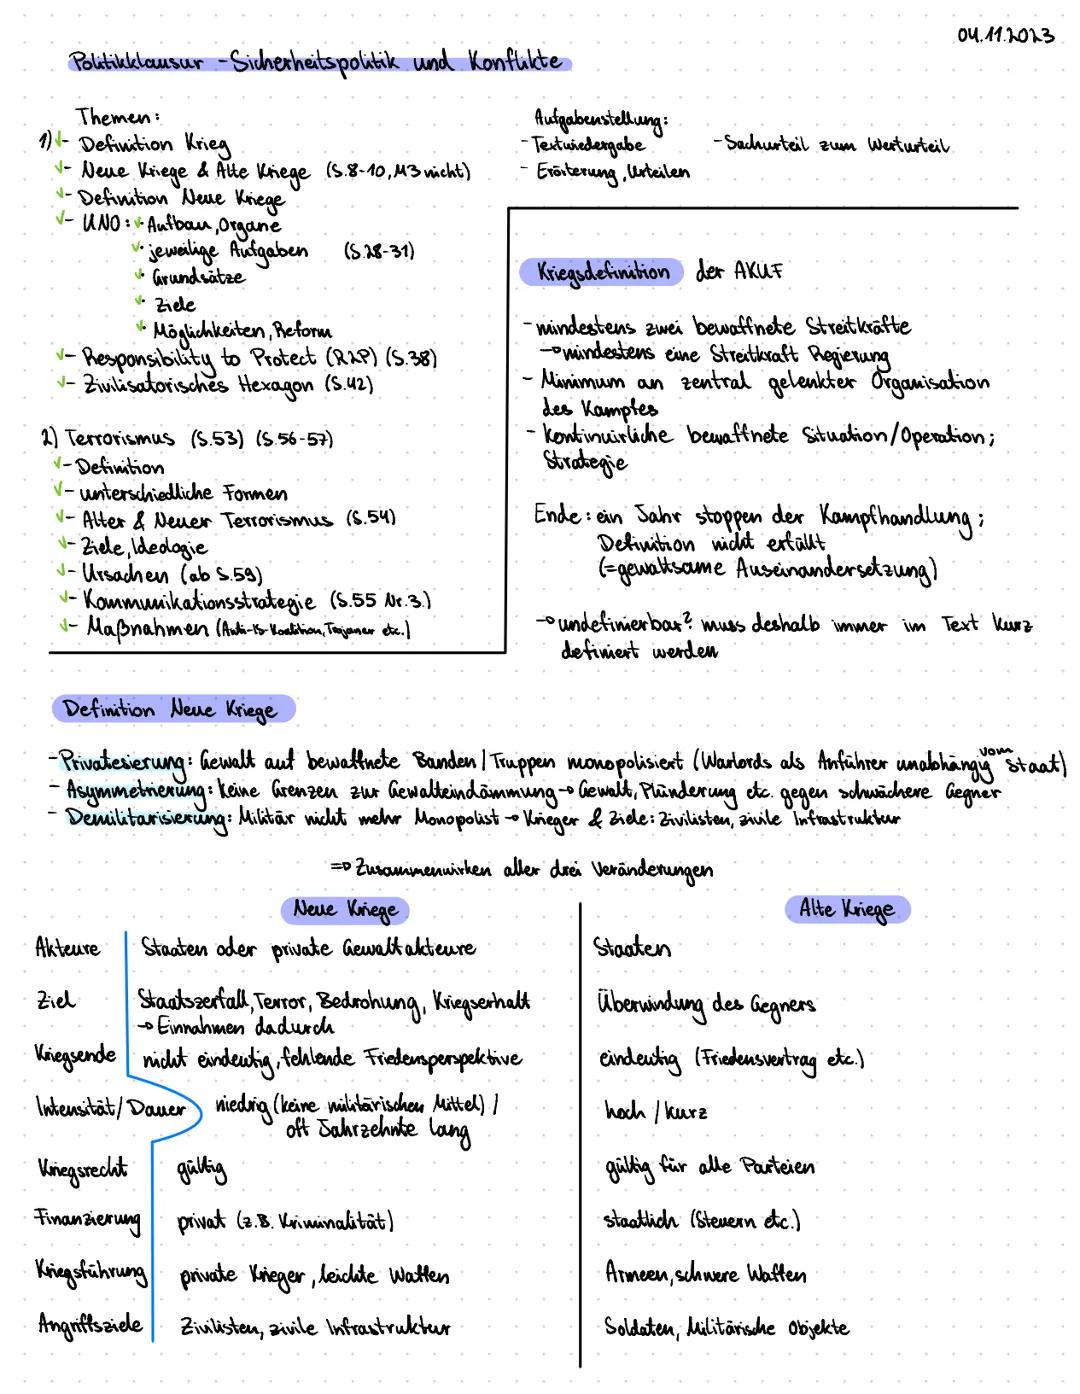 04.11.2023
Politikklausur - Sicherheitspolitik und Konflikte
Themen:
1) ✓- Definition Krieg
✓- Neue Kriege & Alte Kriege (S.8-10, M3 nicht)
✓- Definition Neue Kriege
✓- UNO: ✓• Aufbau, Organe
✓• jeweilige Aufgaben (S.28-31)
✓• Grundsätze
✓• Ziele
✓• Möglichkeiten, Reform
✓- Responsibility to Protect (R2P) (S.38)
✓- Zivilisatorisches Hexagon (S.42)
2) Terrorismus (S.53) (S.56-57)
✓- Definition
✓- unterschiedliche Formen
✓- Alter & Neuer Terrorismus (S.54)
✓- Ziele, Ideologie
✓- Ursachen (ab S.59)
✓- Kommunikationsstrategie (S.55 Nr.3.)
✓- Maßnahmen (Anti-IS-Koalition, Trojaner etc.)
Aufgabenstellung:
- Textwiedergabe - Sachurteil zum Werturteil
- Erörterung, Urteilen
Kriegsdefinition der AKUF
- mindestens zwei bewaffnete Streitkräfte
→ mindestens eine Streitkraft Regierung
- Minimum an zentral gelenkter Organisation
des Kampfes
- kontinuirliche bewaffnete Situation/Operation;
Strategie
Ende: ein Jahr stoppen der Kampfhandlung;
Definition nicht erfüllt
(=gewaltsame Auseinandersetzung)
→ undefinierbar? muss deshalb immer im Text kurz
definiert werden
Definition Neue Kriege
- Privatesierung: Gewalt auf bewaffnete Banden / Truppen monopolisiert (Warlords als Anführer unabhängig vom Staat)
- Asymmetrierung: keine Grenzen zur Gewalteindämmung → Gewalt, Plünderung etc. gegen schwächere Gegner
- Demilitarisierung: Militär nicht mehr Monopolist → Krieger & Ziele: Zivilisten, zivile Infrastruktur
⇒ Zusammenwirken aller drei Veränderungen
Neue Kriege Alte Kriege
Akteure Staaten oder private Gewaltakteure Staaten
Ziel Staatszerfall, Terror, Bedrohung, Kriegserhalt Überwindung des Gegners
→ Einnahmen dadurch
Kriegsende nicht eindeutig, fehlende Friedensperspektive eindeutig (Friedensvertrag etc.)
Intensität/Dauer niedrig (keine militärischen Mittel) / hoch / kurz
oft Jahrzehnte lang
Kriegsrecht gültig gültig für alle Parteien
Finanzierung privat (z.B. Kriminalität) staatlich (Steuern etc.)
Kriegsführung private Krieger, leichte Waffen Armeen, schwere Waffen
Angriffsziele Zivilisten, zivile Infrastruktur Soldaten, Militärische Objekte